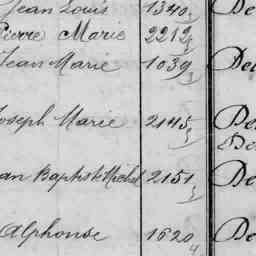 Jean Louis 1340 3 De
Pierre Marie 2212 3
Jean Marie 1039 3 De
Joseph Marie 2145 3 De
De
Jean Baptiste Michel 2151 3 De
Alphonse 1620 4 De